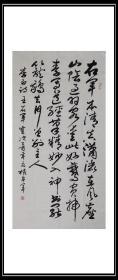 右軍本清真瀟灑在風塵
山陰過羽客愛此好鵝賓掃
素寫道經筆精妙入神書罷
籠鵝去何曾別主人
李白詩王右軍